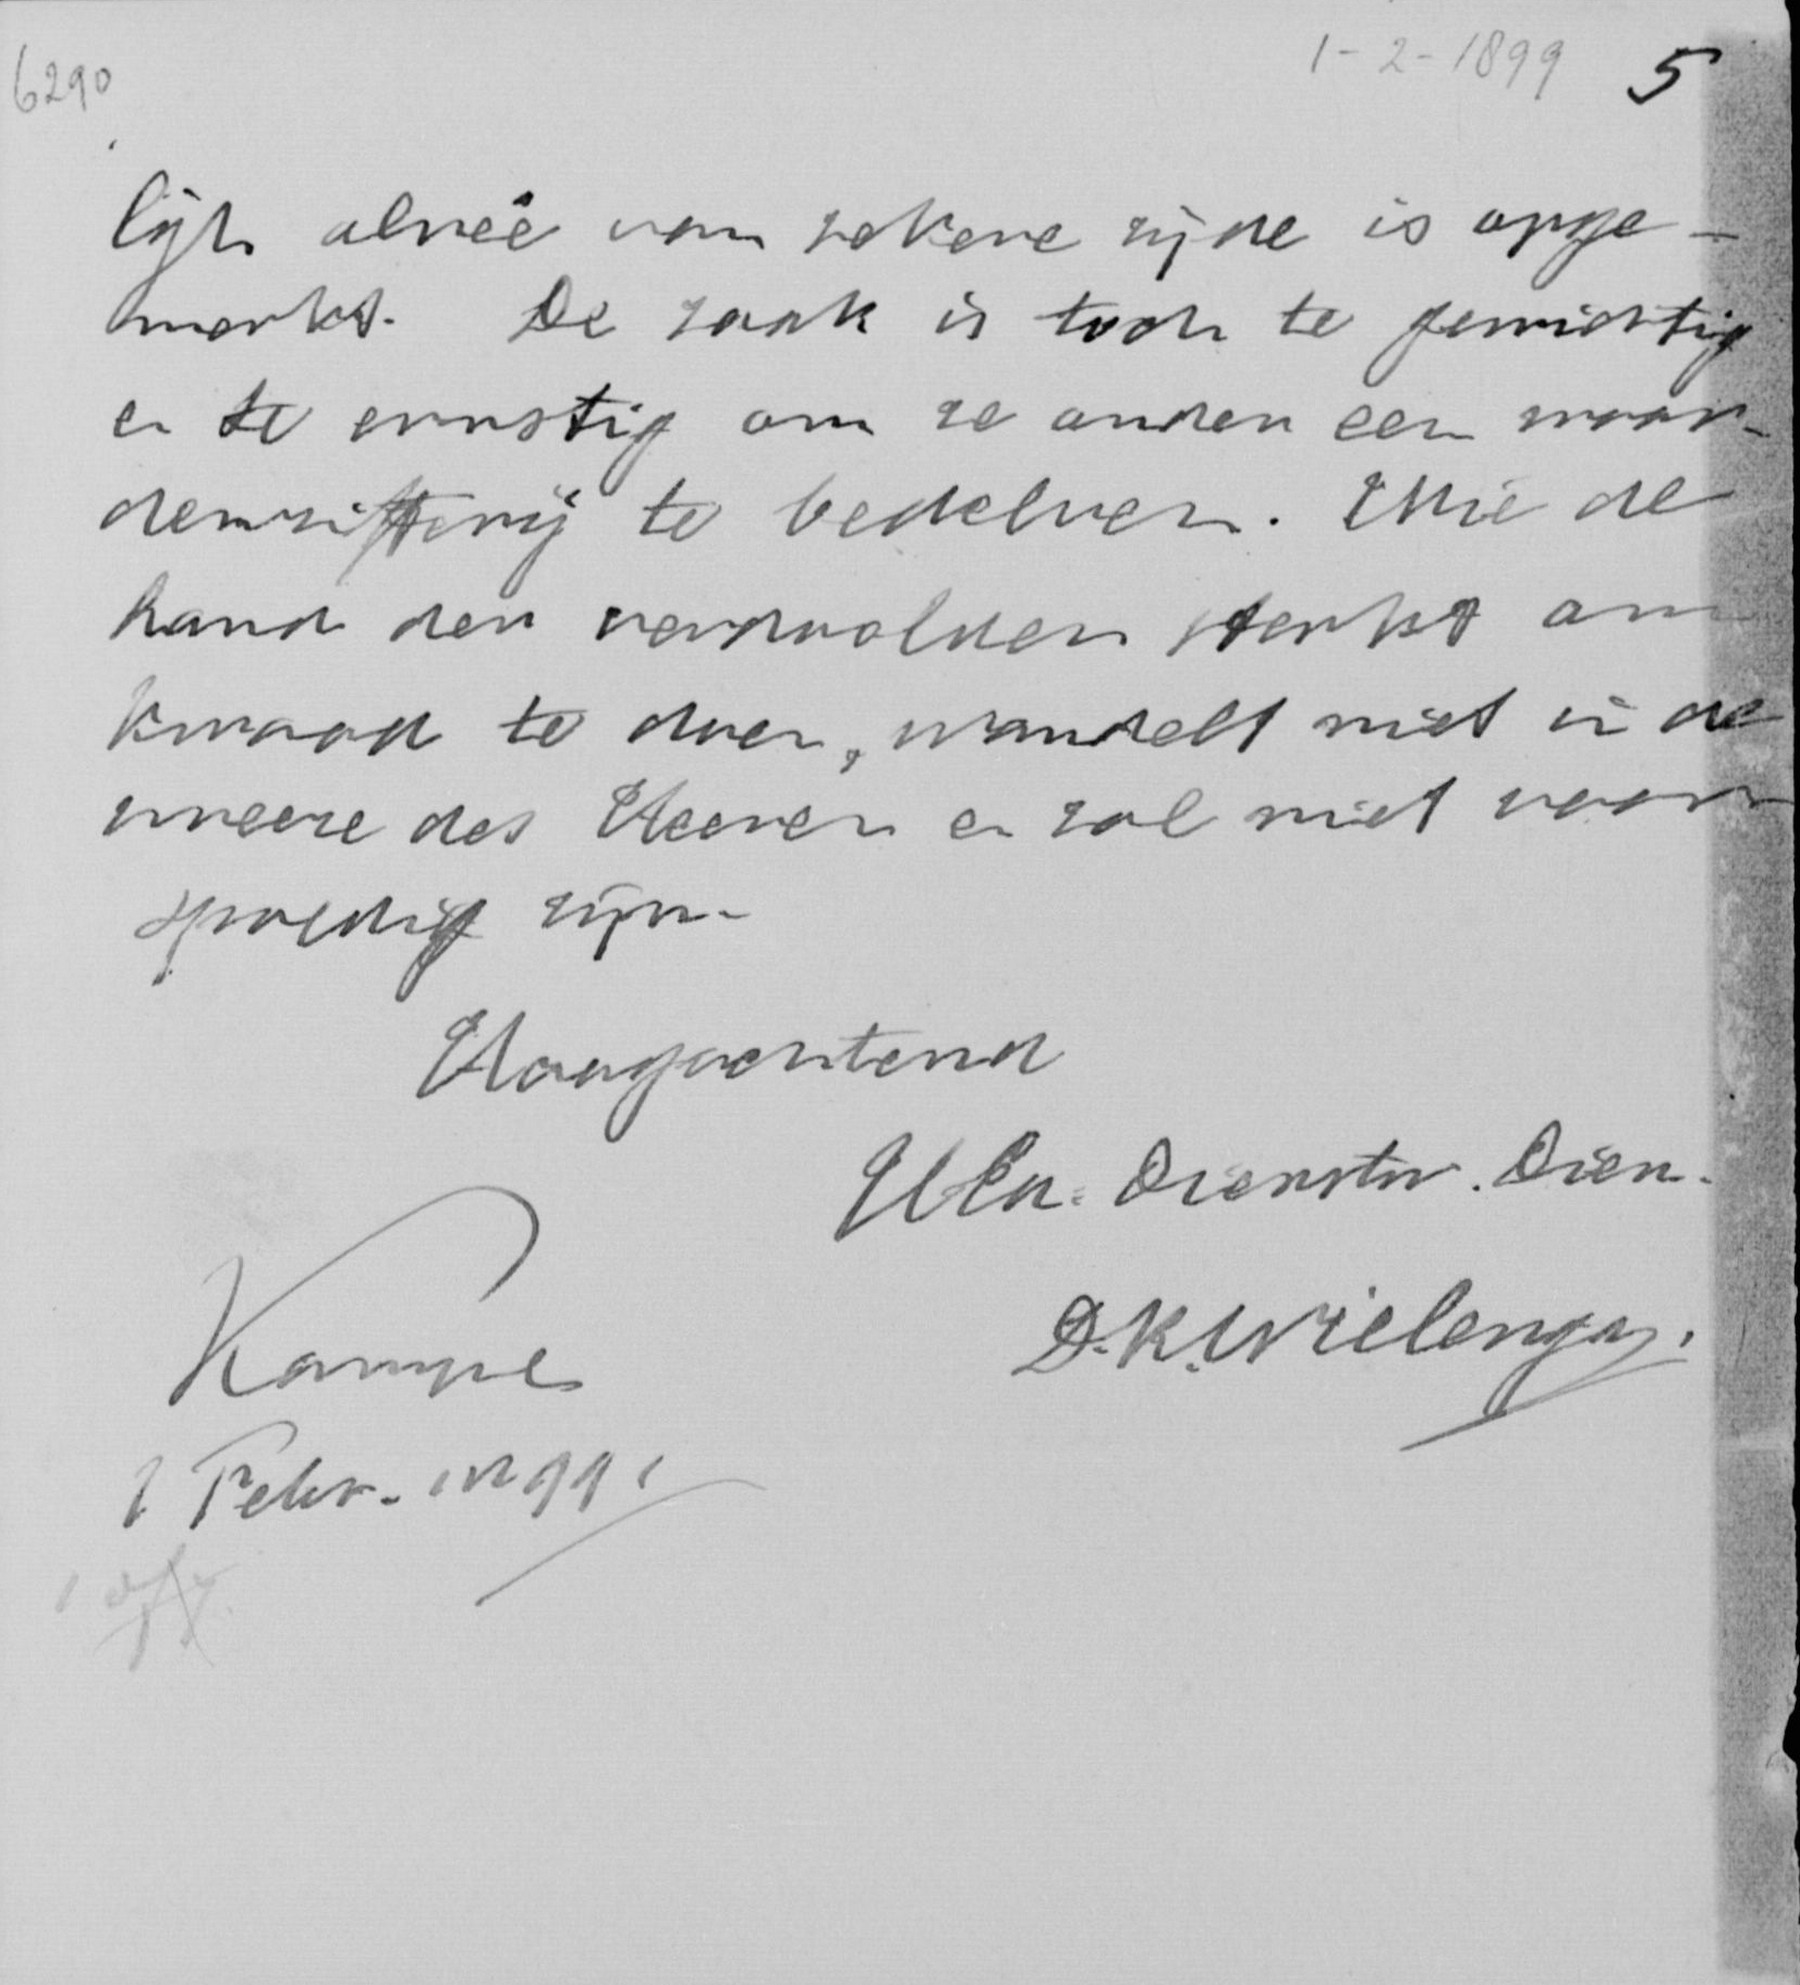 6290
1-2-1899 5
lijk alreê van zekere zijde is opge-
merkt. De zaak is toch te gewichtig
en te ernstig om ze onder een woor-
denzifterij te bedelven. Wie de
hand der verdoolden sterkt om
kwaad te doen, wandelt niet in de
vreeze des Heeren en zal niet voor
spoedig zijn.
Hoogachtend
UEd. Dienstv. Dien.
D.K. Wielenga.
Kampen
1 Febr. 1899.